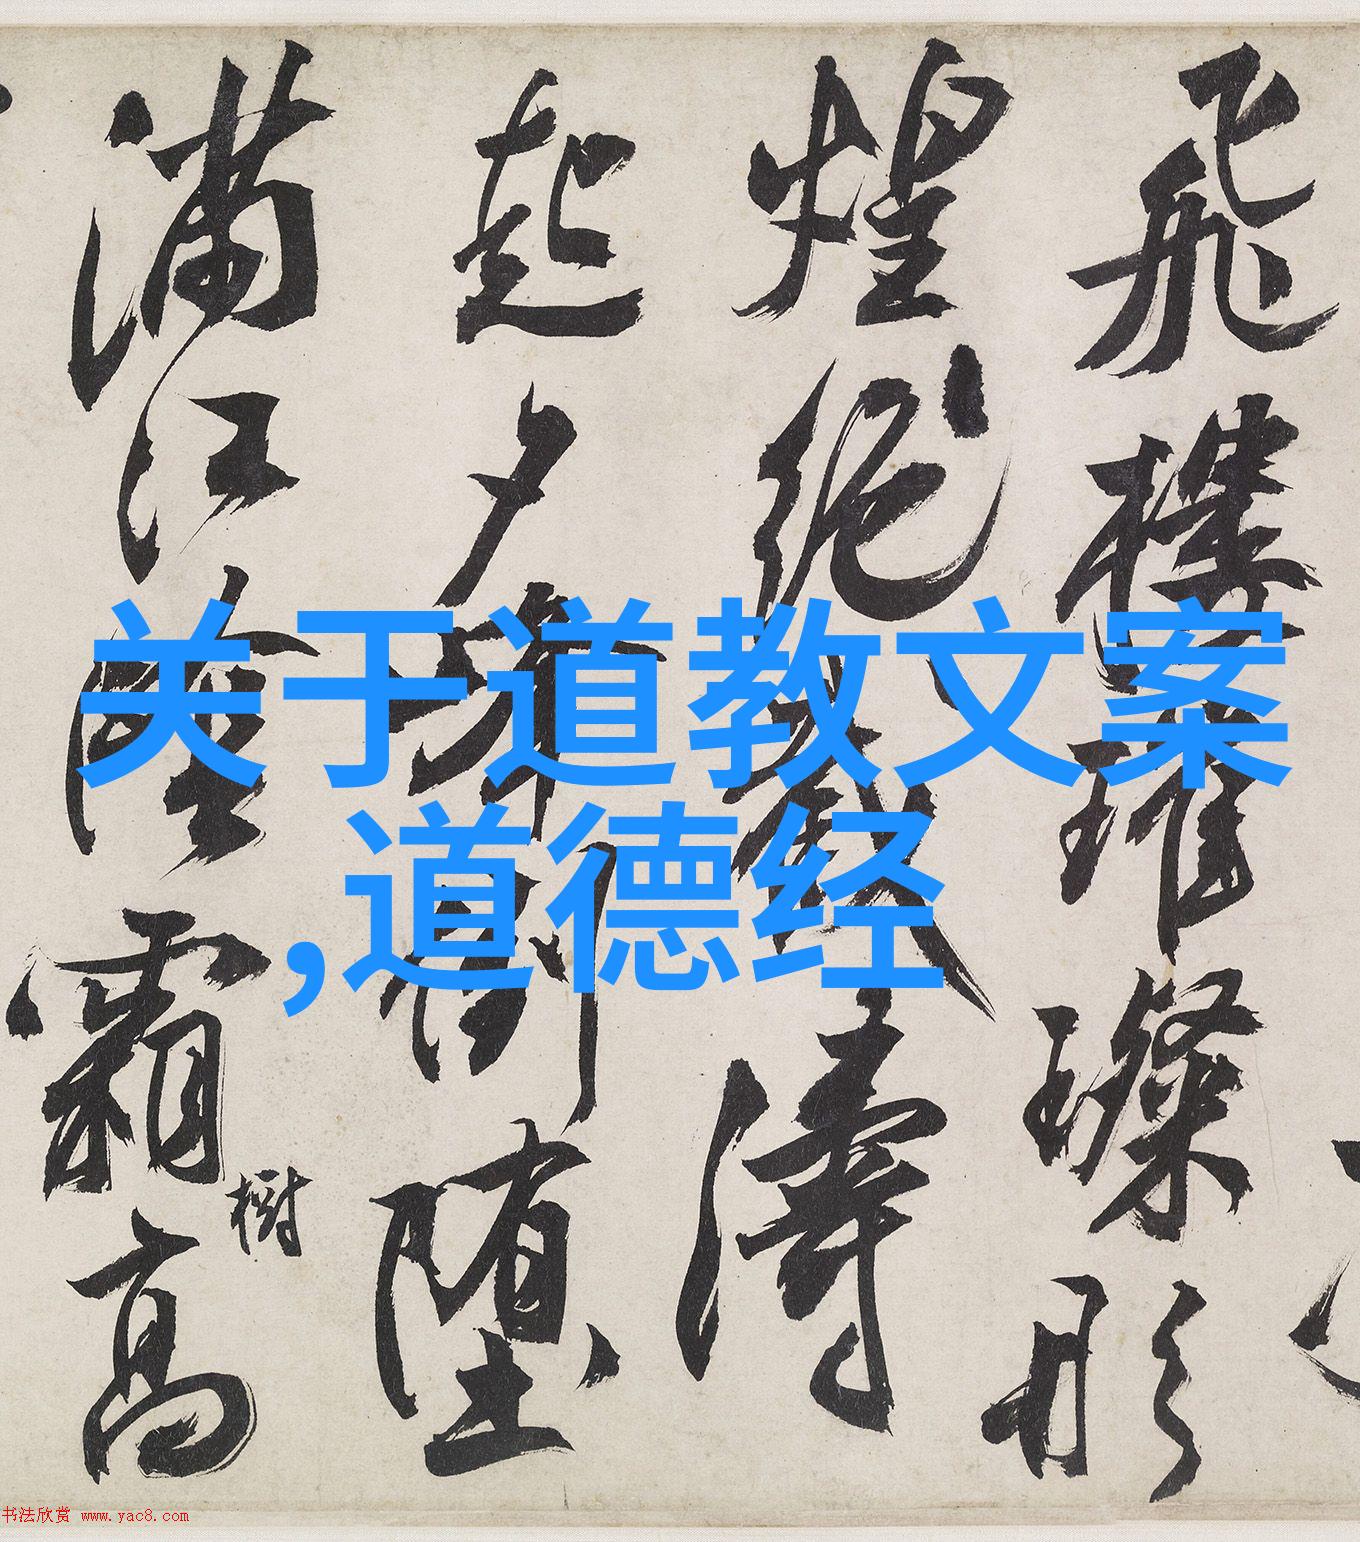 飛樓璀璨形
煌絶濤
起夕倒堕
滿江陰霜高
樹
关于道教文案
,道德经
书法欣赏 www.yac8.com